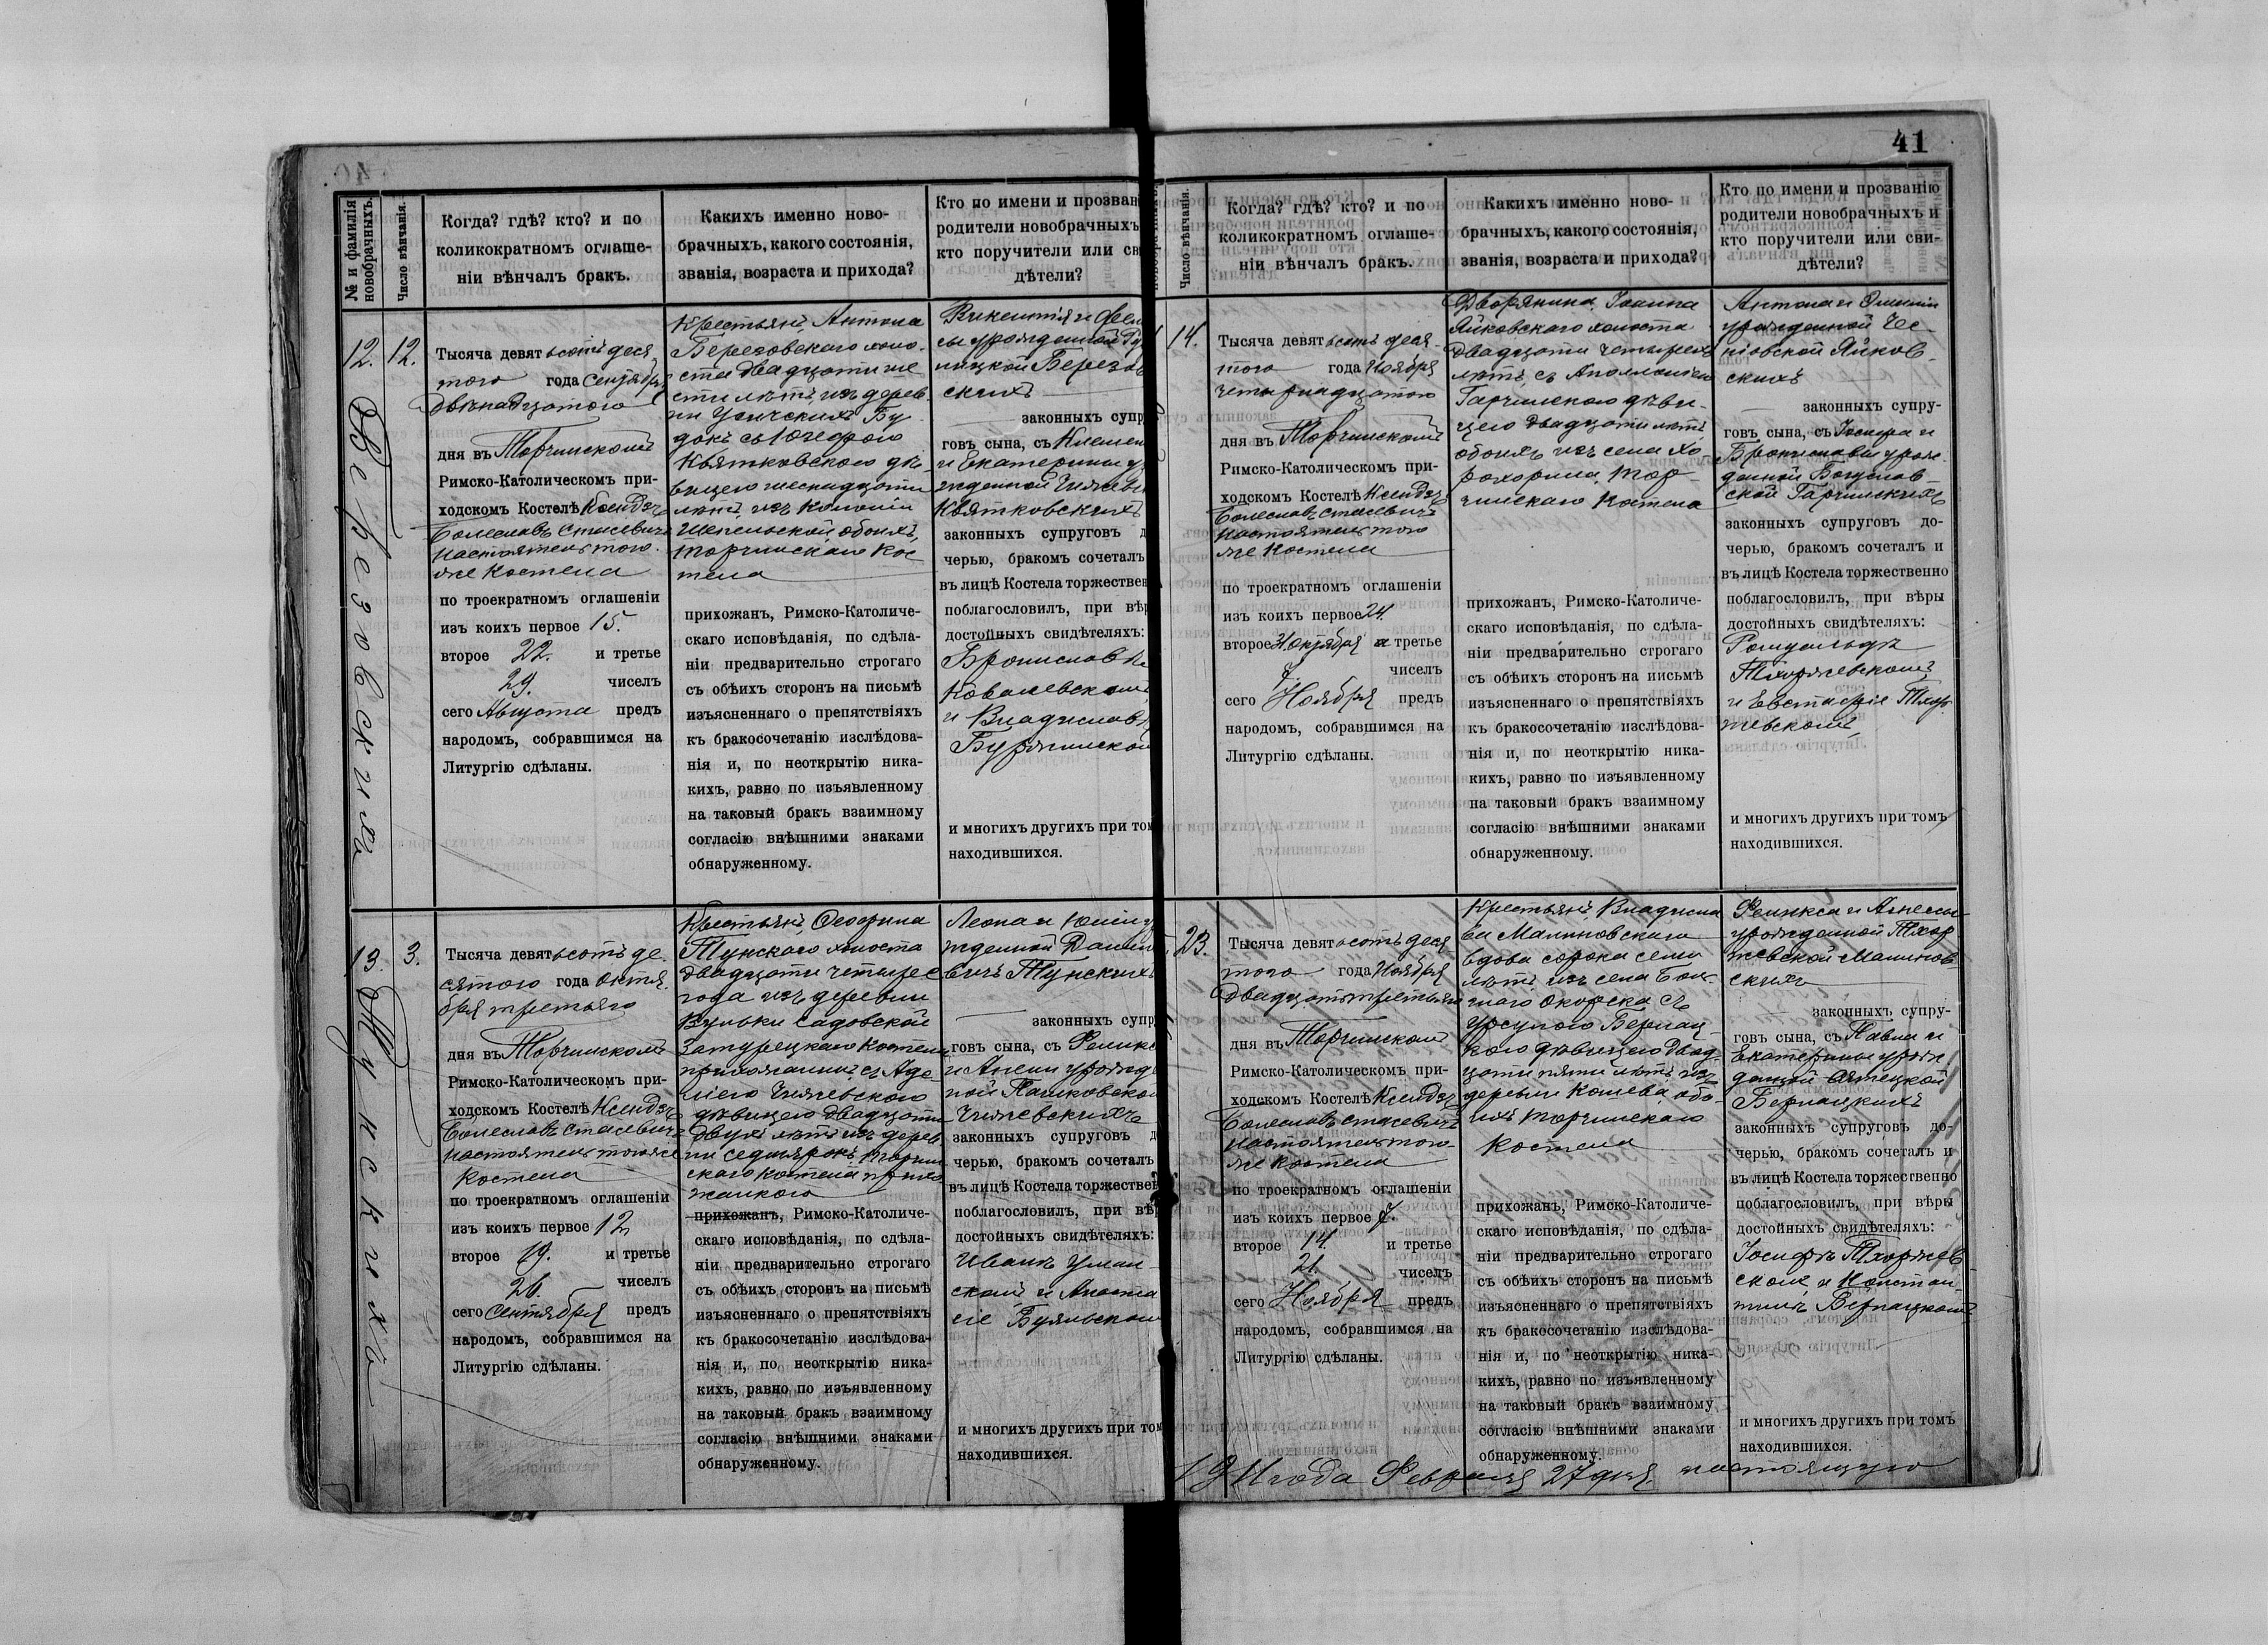 41
№ и фамилія
новобрачныхъ.
Число вѣнчанія.
Когда? гдѣ? кто? и по
коликократномъ оглаше-
ніи вѣнчалъ бракъ.
Какихъ именно ново-
брачныхъ, какого состоянія,
званія, возраста и прихода?
Кто по имени и прозван
родители новобрачныхъ
кто поручители или св
дѣтели?
12.
Березовскихъ
12.
Тысяча девятьсотъ деся
того года Сентября
двѣнадцатого
дня въ Торчинскомъ
Римско-Католическомъ при-
ходскомъ Костелѣ Ксендзъ
Болеславъ Стасевичъ
настоятель того
же Костела
по троекратномъ оглашеніи
изъ коихъ первое 15.
второе 22. и третье
29. чиселъ
сего Августа предъ
народомъ, собравшимся на
Литургію сдѣланы.
Крестьянъ, Антона
Березовскаго холо-
ста двадцати ше
сти лѣтъ, изъ дерев
ни Бу
докъ съ Юзефою
Квятковскою дѣ-
вицею шеснадцати
лѣтъ изъ Колоніи
Шепельской, обоихъ,
Торчинскаго Кос
тела
прихожанъ, Римско-Католиче-
скаго исповѣданія, по сдѣла-
ніи предварительно строгаго
съ обѣихъ сторонъ на письмѣ
изъясненнаго о препятствіяхъ
къ бракосочетанію изслѣдова-
нія и, по неоткрытію ника-
кихъ, равно по изъявленному
на таковый бракъ взаимному
согласію внѣшними знаками
обнаруженному.
Викентія и
сы урожденной
Березов
скихъ
законныхъ супр
говъ сына, съ Клемен
и Екатерины у
жденной
Квятковскихъ
законныхъ супруговъ д
черью, бракомъ сочеталъ
въ лицѣ Костела торжествен
поблагословилъ, при вѣр
достойныхъ свидѣтеляхъ:
Брониславѣ
Ковалевскомъ
и Владиславѣ
и многихъ другихъ при том
находившихся.
13.
Тунскихъ
3.
Тысяча девятьсотъ де
сятого года Октя
бря третьяго
дня въ Торчинскомъ
Римско-Католическомъ при-
ходскомъ Костелѣ Ксендзъ
Болеславъ Стасевичъ
настоятель тогоже
Костела
по троекратномъ оглашеніи
изъ коихъ первое 12
второе 19. и третье
26. чиселъ
сего Сентября предъ
народомъ, собравшимся на
Литургію сдѣланы.
Крестьянъ,
Тунскаго холоста
двадцати четырес
года изъ деревни
Вульки Садовской
Затурецкаго Костела
прихожанина съ Аде-
ліею Чижевскою
дѣвицею двадцати
двухъ лѣтъ изъ дерев
ни Седмярокъ Торчин
скаго Костела прихо
жанкою
прихожанъ, Римско-Католиче-
скаго исповѣданія, по сдѣла-
ніи предварительно строгаго
съ обѣихъ сторонъ на письмѣ
изъясненнаго о препятствіяхъ
къ бракосочетанію изслѣдова-
нія и, по неоткрытію ника-
кихъ, равно по изъявленному
на таковый бракъ взаимному
согласію внѣшними знаками
обнаруженному.
Леона и
жденной
вичъ Тунскихъ
законныхъ супр
говъ сына, съ Феликс
и Анели урожд
ной Пашковской
Чижевскихъ
законныхъ супруговъ д
черью, бракомъ сочеталъ
въ лицѣ Костела торжествен
поблагословилъ, при вѣ
достойныхъ свидѣтеляхъ:
Иванѣ Уман
скомъ и Анаста
сіе
и многихъ другихъ при том
находившихся.
Число вѣнчанія.
Когда? гдѣ? кто? и по
коликократномъ оглаше-
ніи вѣнчалъ бракъ.
Какихъ именно ново-
брачныхъ, какого состоянія,
званія, возраста и прихода?
Кто по имени и прозванію
родители новобрачныхъ и
кто поручители или сви-
дѣтели?
14.
Тысяча девятьсотъ деся-
того года Ноября
четырнадцатого
дня въ Торчинскомъ
Римско-Католическомъ при-
ходскомъ Костелѣ Ксендзъ
Болеславъ Стасевичъ
настоятель того
же Костела
по троекратномъ оглашеніи
изъ коихъ первое 24.
второе 31 Октября а третье
7. чиселъ
сего Ноября предъ
народомъ, собравшимся на
Литургію сдѣланы.
Дворянина, Іоанна
Яйковскаго холоста
двадцати четырехъ
лѣтъ, съ Аполлоніею
Гарчинскою дѣви-
цею двадцати лѣтъ,
обоихъ изъ села Хо
рохорина, Тор-
чинскаго Костела
прихожанъ, Римско-Католиче-
скаго исповѣданія, по сдѣла-
ніи предварительно строгаго
съ обѣихъ сторонъ на письмѣ
изъясненнаго о препятствіяхъ
къ бракосочетанію изслѣдова-
нія и, по неоткрытію ника-
кихъ, равно по изъявленному
на таковый бракъ взаимному
согласію внѣшними знаками
обнаруженному.
Антона и Эмиліи
урожденной Чес-
ковской Яйков-
скихъ
законныхъ супру-
говъ сына, съ Іосифа и
Брониславы урож
денной Богуслав-
ской Гарчинскихъ
законныхъ супруговъ до-
черью, бракомъ сочеталъ и
въ лицѣ Костела торжественно
поблагословилъ, при вѣры
достойныхъ свидѣтеляхъ:
Ромуальдѣ
Тхоржевскомъ
и Евстафіе Тхор
жевскомъ,
и многихъ другихъ при томъ
находившихся.
23.
Тысяча девятьсотъ деся
того года Ноября
двадцать третьяго
дня въ Торчинскомъ
Римско-Католическомъ при-
ходскомъ Костелѣ Ксендзъ
Болеславъ Стасевичъ
настоятель того
же Костела
по троекратномъ оглашеніи
изъ коихъ первое 7.
второе 14. и третье
21. чиселъ
сего Ноября предъ
народомъ, собравшимся на
Литургію сдѣланы.
Крестьянъ, Владисла
ва Малиновскаго
вдова сорока семи
лѣтъ изъ села Боль
шаго Окорска съ
Урсулою Бернац-
кою дѣвицею двад-
цати пяти лѣтъ изъ
деревни Кошева, обо-
ихъ Торчинскаго
Костела
прихожанъ, Римско-Католиче-
скаго исповѣданія, по сдѣла-
ніи предварительно строгаго
съ обѣихъ сторонъ на письмѣ
изъясненнаго о препятствіяхъ
къ бракосочетанію изслѣдова-
нія и, по неоткрытію ника-
кихъ, равно по изъявленному
на таковый бракъ взаимному
согласію внѣшними знаками
обнаруженному.
Феликса и Агнесы
урожденной Тхор
жевской Малинов
скихъ
законныхъ супру-
говъ сына, съ Павла и
Екатерины урож
денной
Бернацкихъ
законныхъ супруговъ до-
черью, бракомъ сочеталъ и
въ лицѣ Костела торжественно
поблагословилъ, при вѣры
достойныхъ свидѣтеляхъ:
Іосифѣ Тхоржев
скомъ и Констан
тинѣ Бернацкомъ,
и многихъ другихъ при томъ
находившихся.
1911 года Февраля 27 дня. настоящую